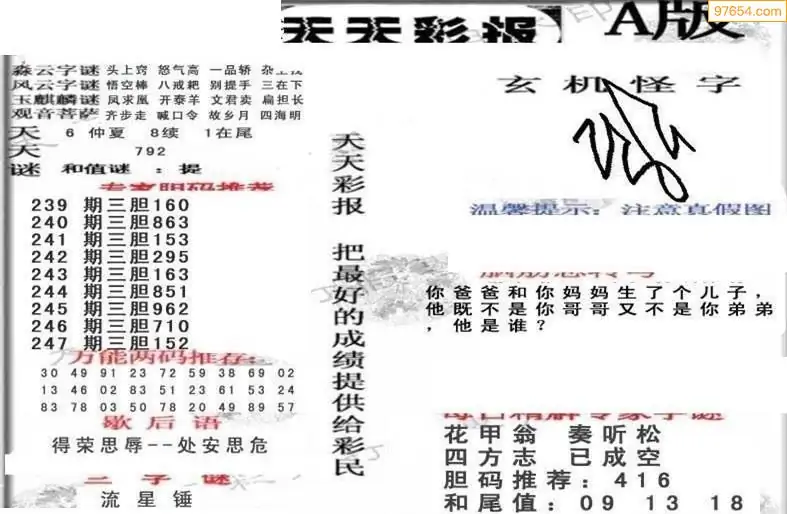 97654.com
天天彩报
A版
森云字谜 头上窍 怒气高 一品轿
风云字谜 悟空棒 八戒耙 别提手 三在下
玉麒麟谜 凤求凰 开泰羊 文君卖 扁担长
观音菩萨 齐步走 喊口令 故乡月 四海明
天 6 仲夏 8续 1在尾
天 792
谜 和值谜 : 提
专家胆码推荐
239 期三胆160
240 期三胆863
241 期三胆153
242 期三胆295
243 期三胆163
244 期三胆851
245 期三胆962
246 期三胆710
247 期三胆152
万能两码推荐:
30 49 91 23 72 59 38 69 02
13 46 02 83 51 23 61 53 24
83 78 03 50 78 20 49 89 57
歇后语
得荣思辱--处安思危
三字谜
流星锤
天天彩报 把最好的成绩提供给彩民
玄机怪字
温馨提示: 注意真假图
脑筋急转弯
你爸爸和你妈妈生了个儿子，
他既不是你哥哥又不是你弟弟
，他是谁？
每日精解专家字谜
花甲翁 奏听松
四方志 已成空
胆码推荐: 416
和尾值: 09 13 18